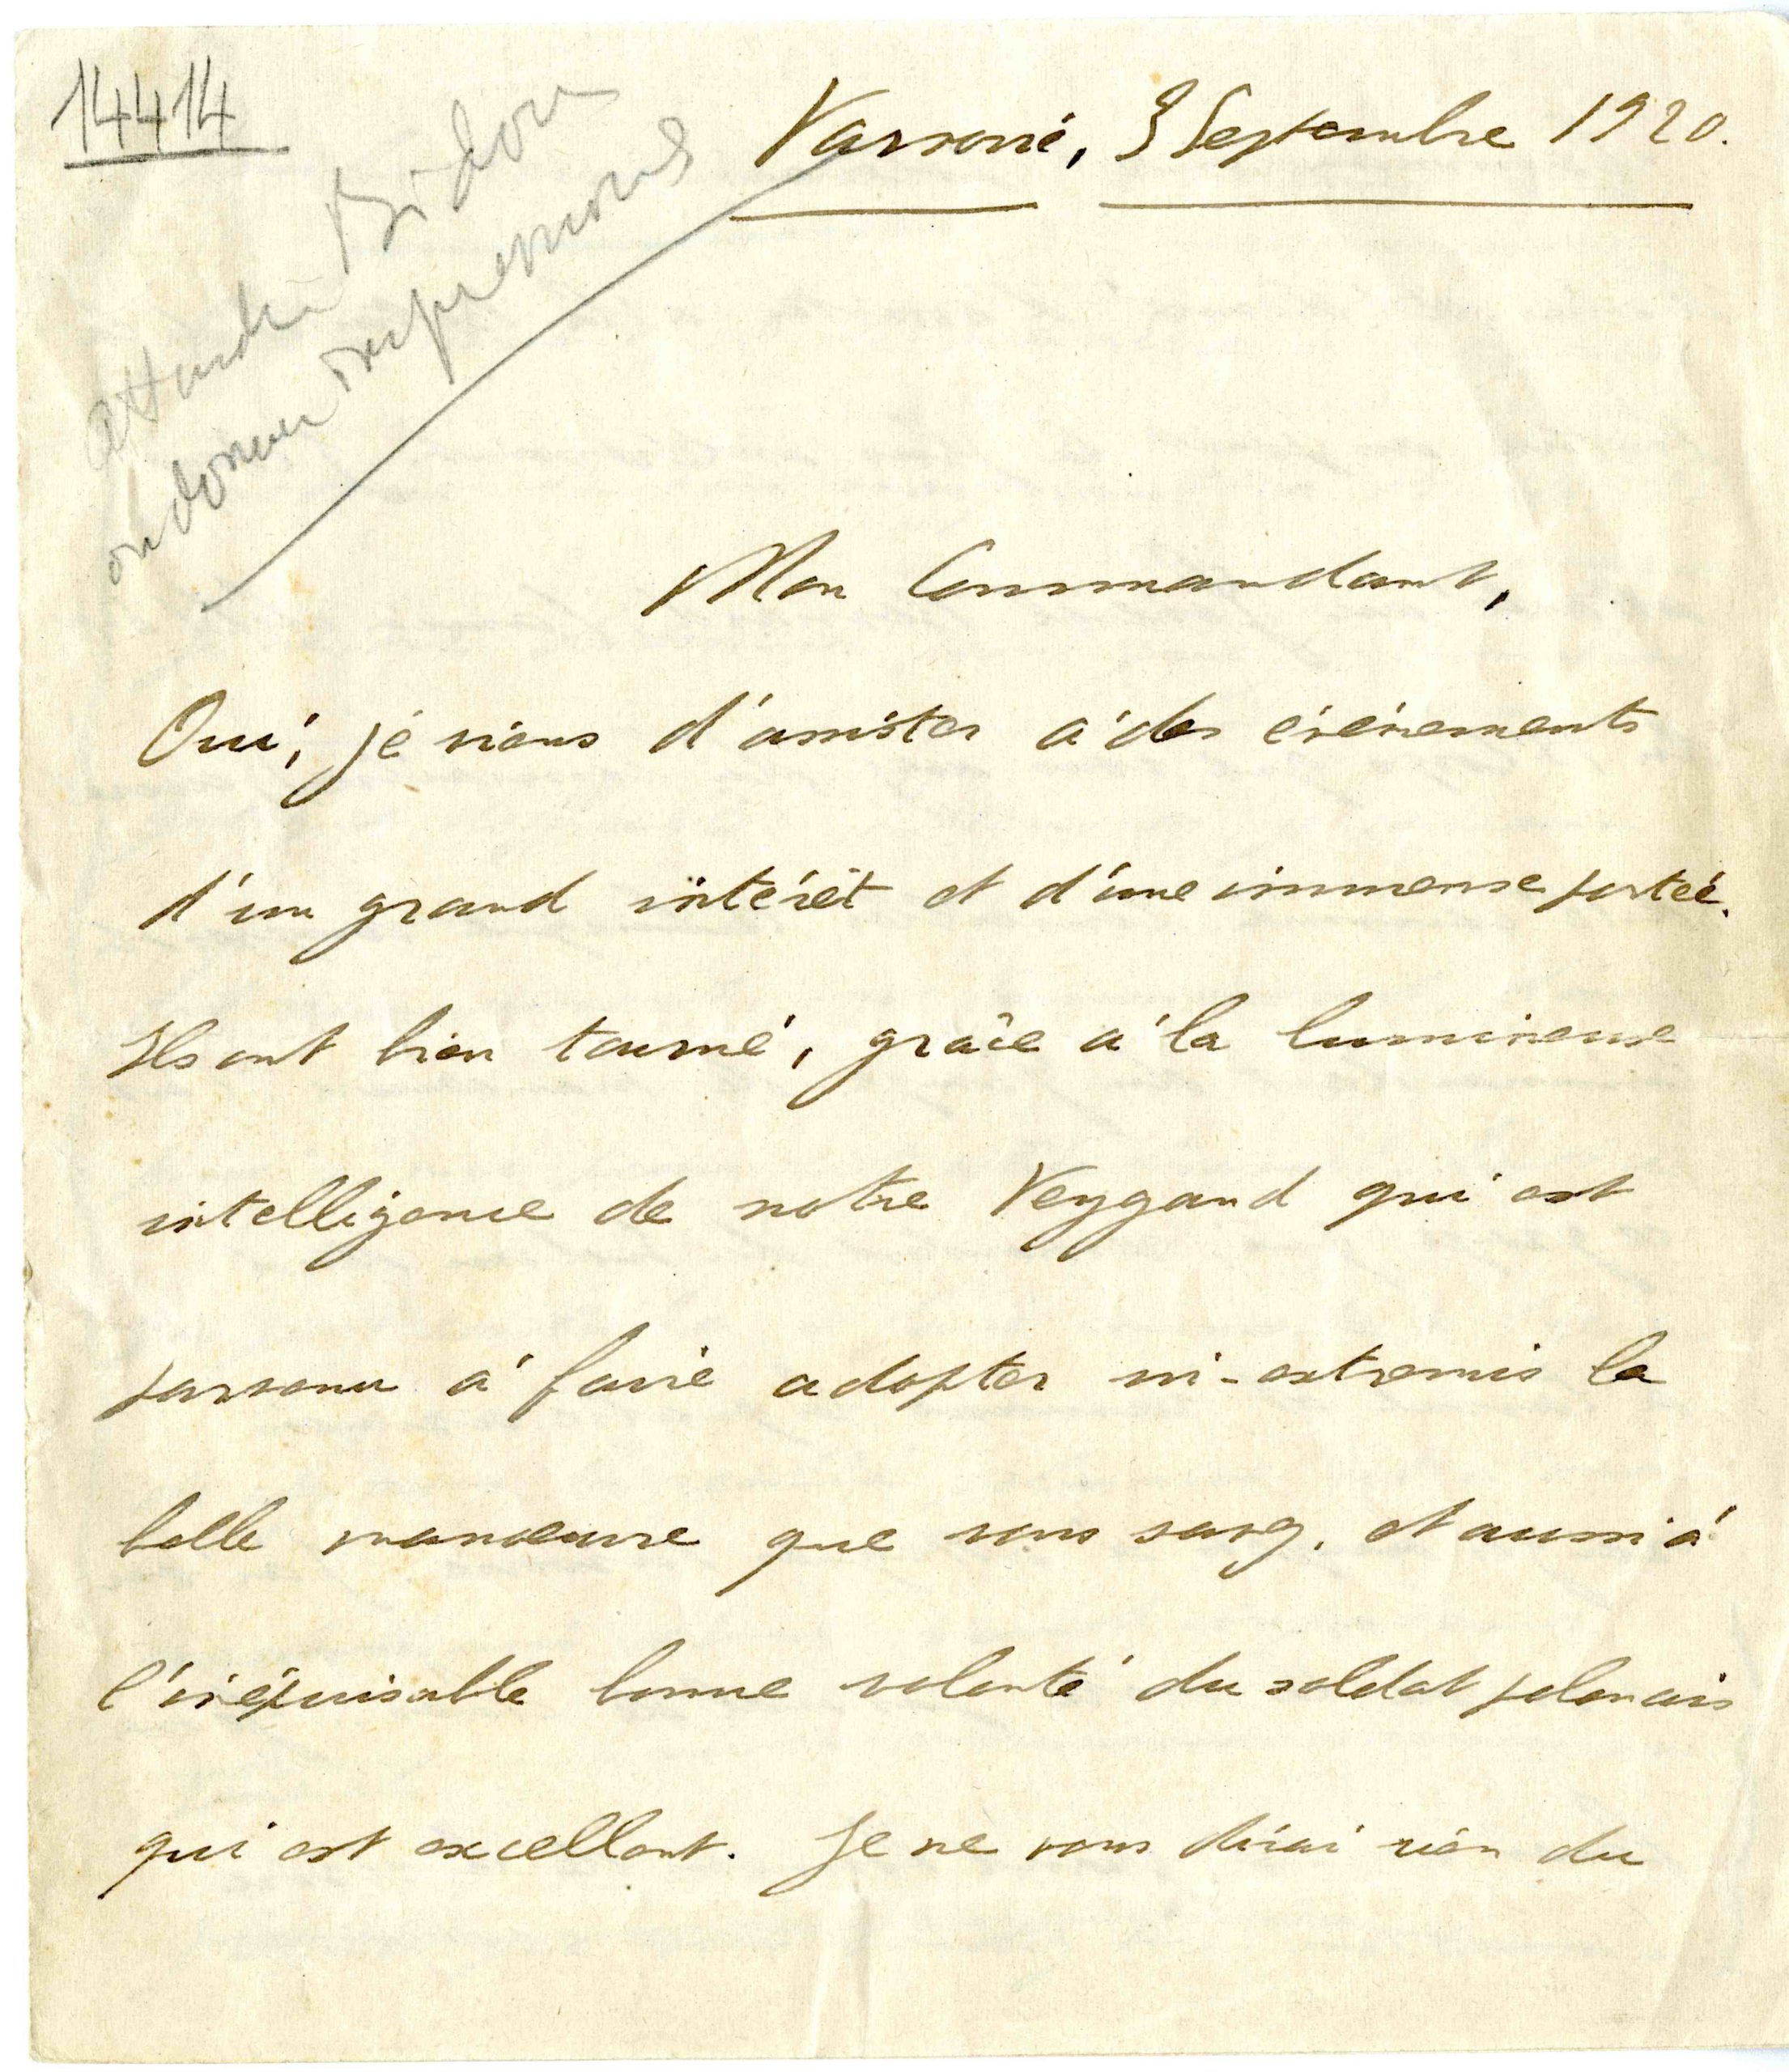 14414
Varsovie, 3 Septembre 1920.
Bidou
Mon Commandant,
Oui, je viens d'assister à des événements
d'un grand intérêt et d'une immense portée.
Ils ont bien tourné, grâce à la lumineuse
intelligence de notre Veygand qui est
parvenu à faire adopter in-extremis la
belle manoeuvre que vous savez, et aussi à
l'inépuisable bonne volonté du soldat polonais
qui est excellent. Je ne vous dirai rien du